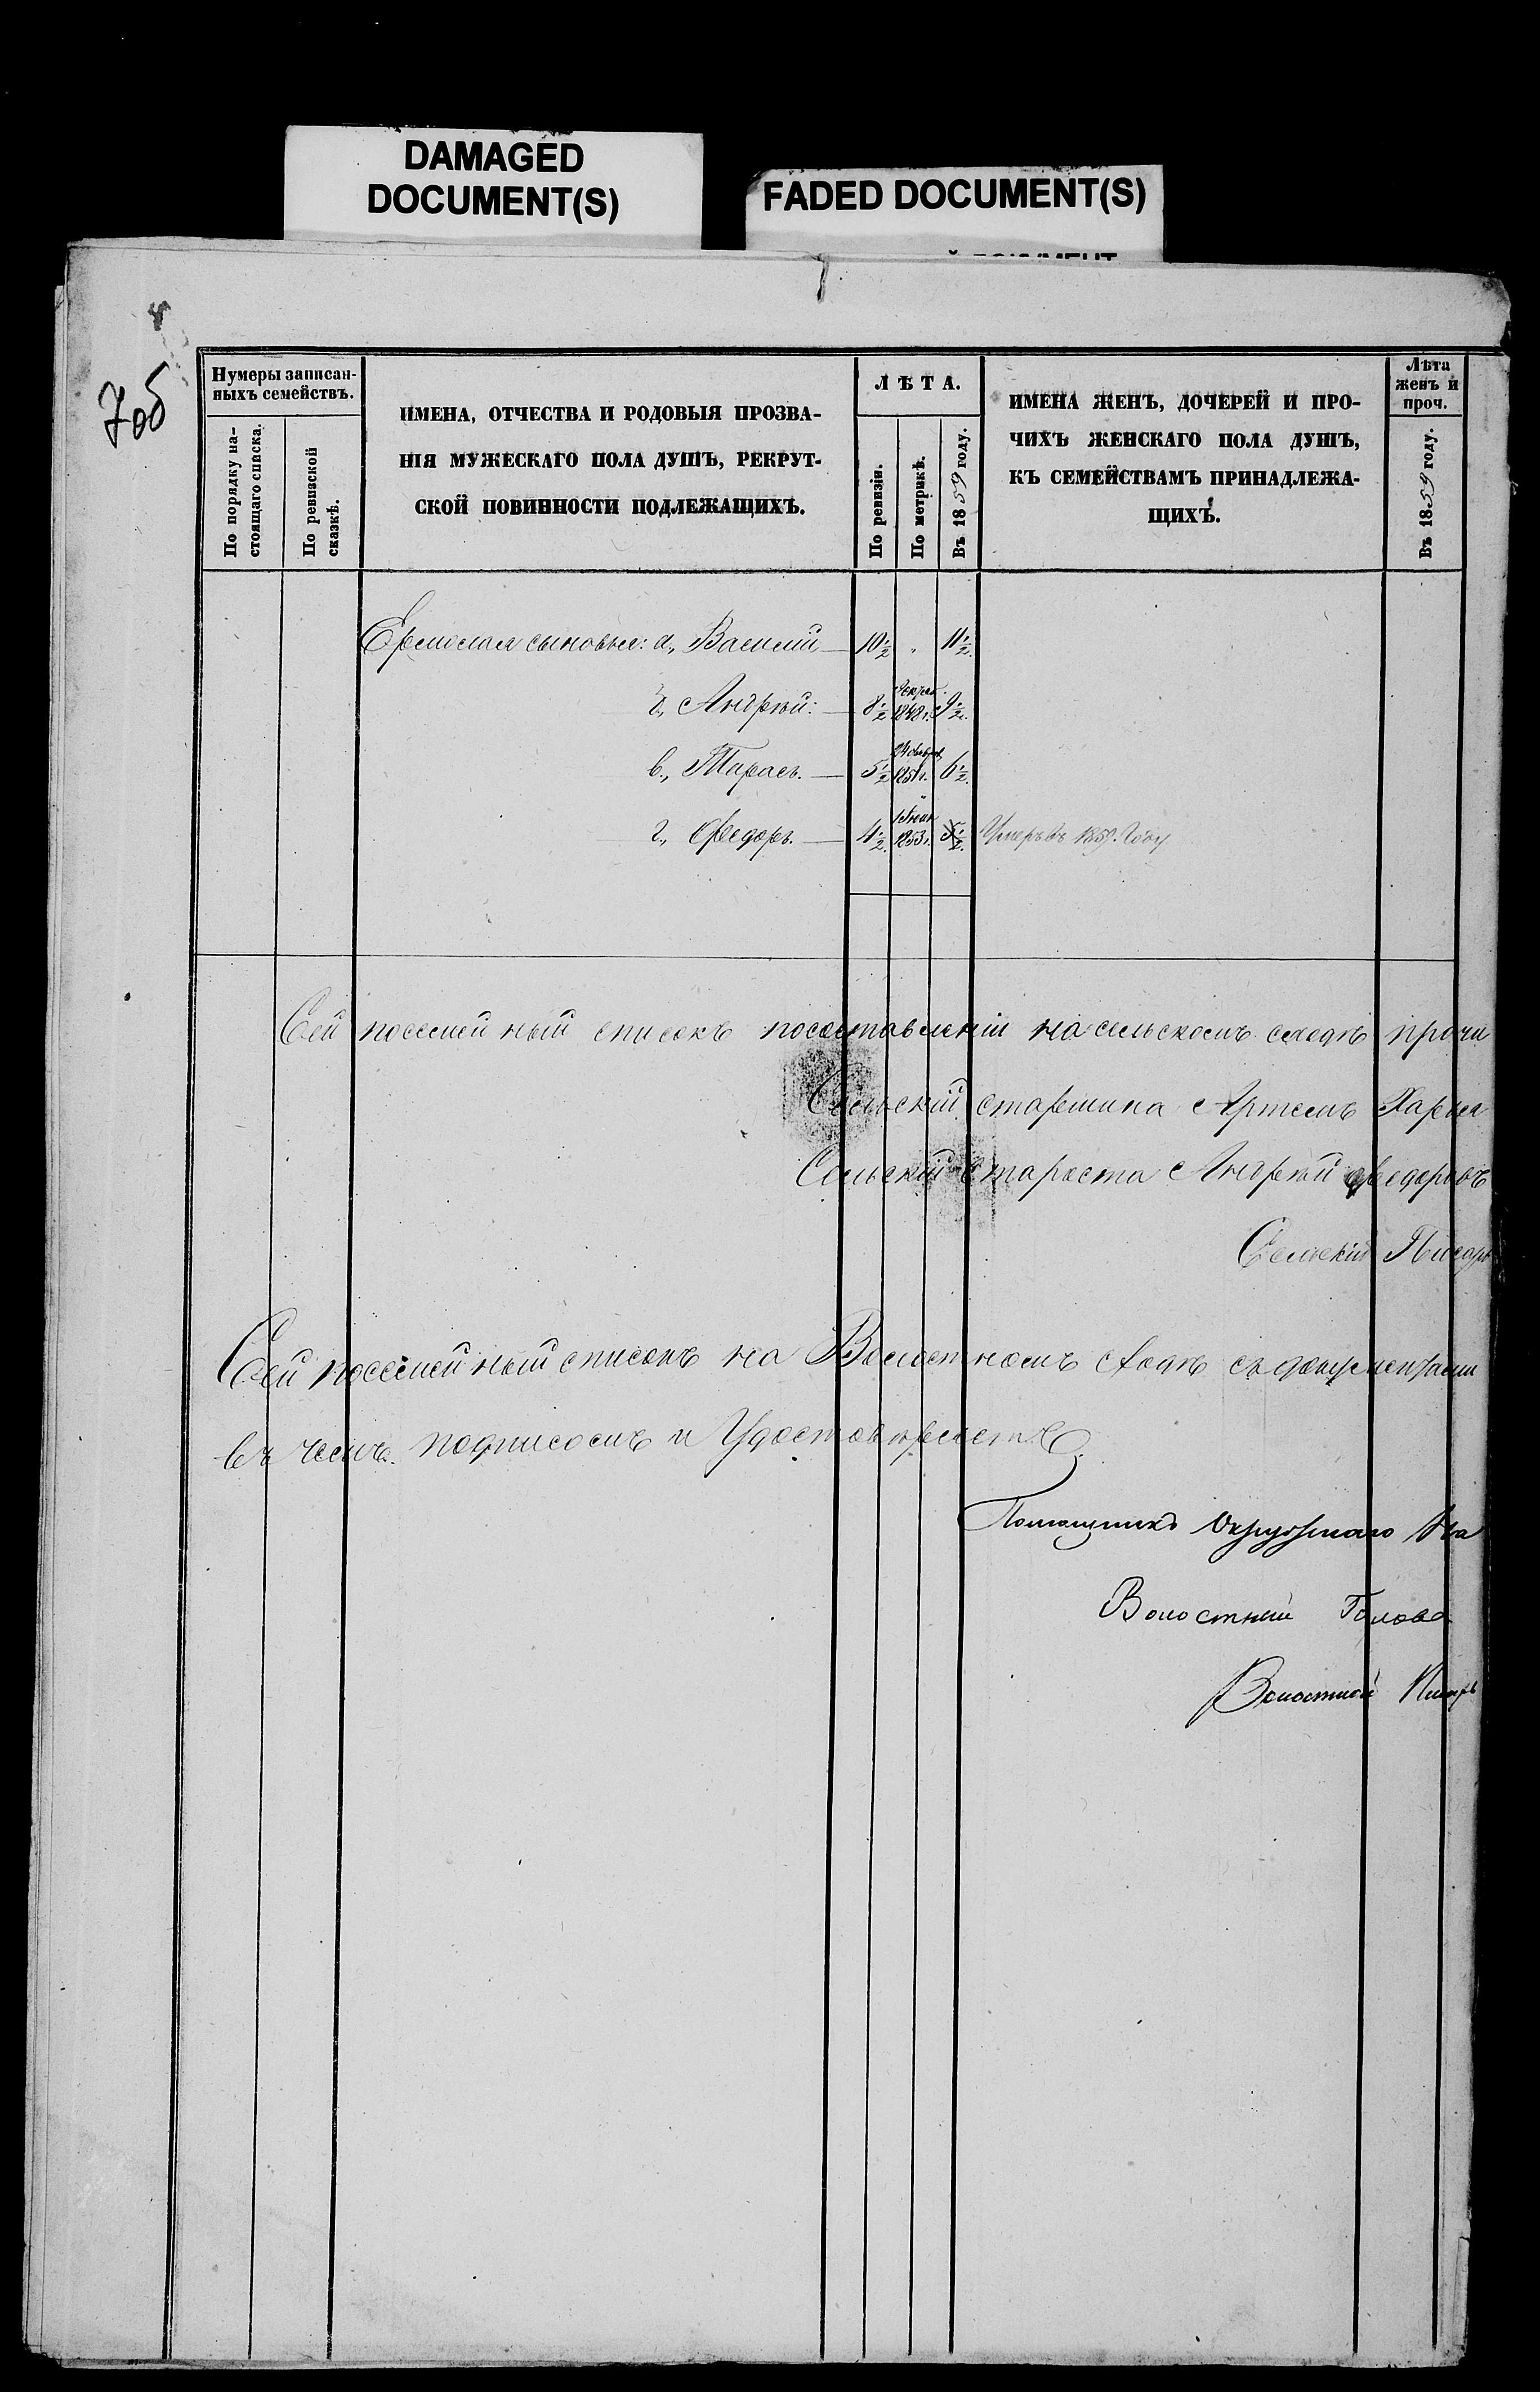 DAMAGED
DOCUMENT(S)
FADED DOCUMENT(S)
70б
Нумеры записан-
ныхъ семействъ.
По порядку на-
стоящаго списка.
По ревизской
сказкѣ.
ИМЕНА, ОТЧЕСТВА И РОДОВЫЯ ПРОЗВА-
НІЯ МУЖЕСКАГО ПОЛА ДУШЪ, РЕКРУТ-
СКОЙ ПОВИННОСТИ ПОДЛЕЖАЩИХЪ.
ЛѢТА.
По ревизіи.
По метрикѣ.
Въ 1859 году.
ИМЕНА ЖЕНЪ, ДОЧЕРЕЙ И ПРО-
ЧИХЪ ЖЕНСКАГО ПОЛА ДУШЪ,
КЪ СЕМЕЙСТВАМЪ ПРИНАДЛЕЖА-
ЩИХЪ.
Лѣта
женъ и
проч.
Въ 1859 году.
Ермолая сыновья: а., Василій — 10½ " 11½.
Андрѣй: — 8½ 1848 г. 9½.
в., Тарасъ. — 5½ 1851 г. 6½.
г., Федоръ. — 4½. 1853 г. 5½. Умеръ въ 1859. Году
Сей посемейный списокъ посоставленіи на сельскомъ сходѣ прочи
Сельскій старшина Артемъ
Сельскій Староста Андрѣй Федоровъ
Сельскій Писарь
Сей посемейный списокъ на Волостномъ сходѣ съ документами
въ чемъ подписомъ и Удостовѣряемъ
Помощникъ Окружнаго На
Волостный Голова
Волостной Писарь